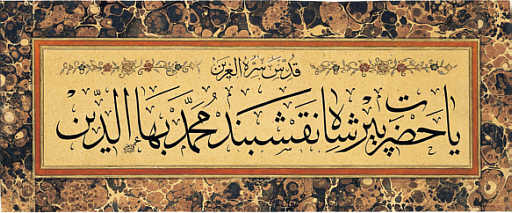 قدس سره العزيز
يا حضرت پير شاه نقشبند محمد بهاء الدين